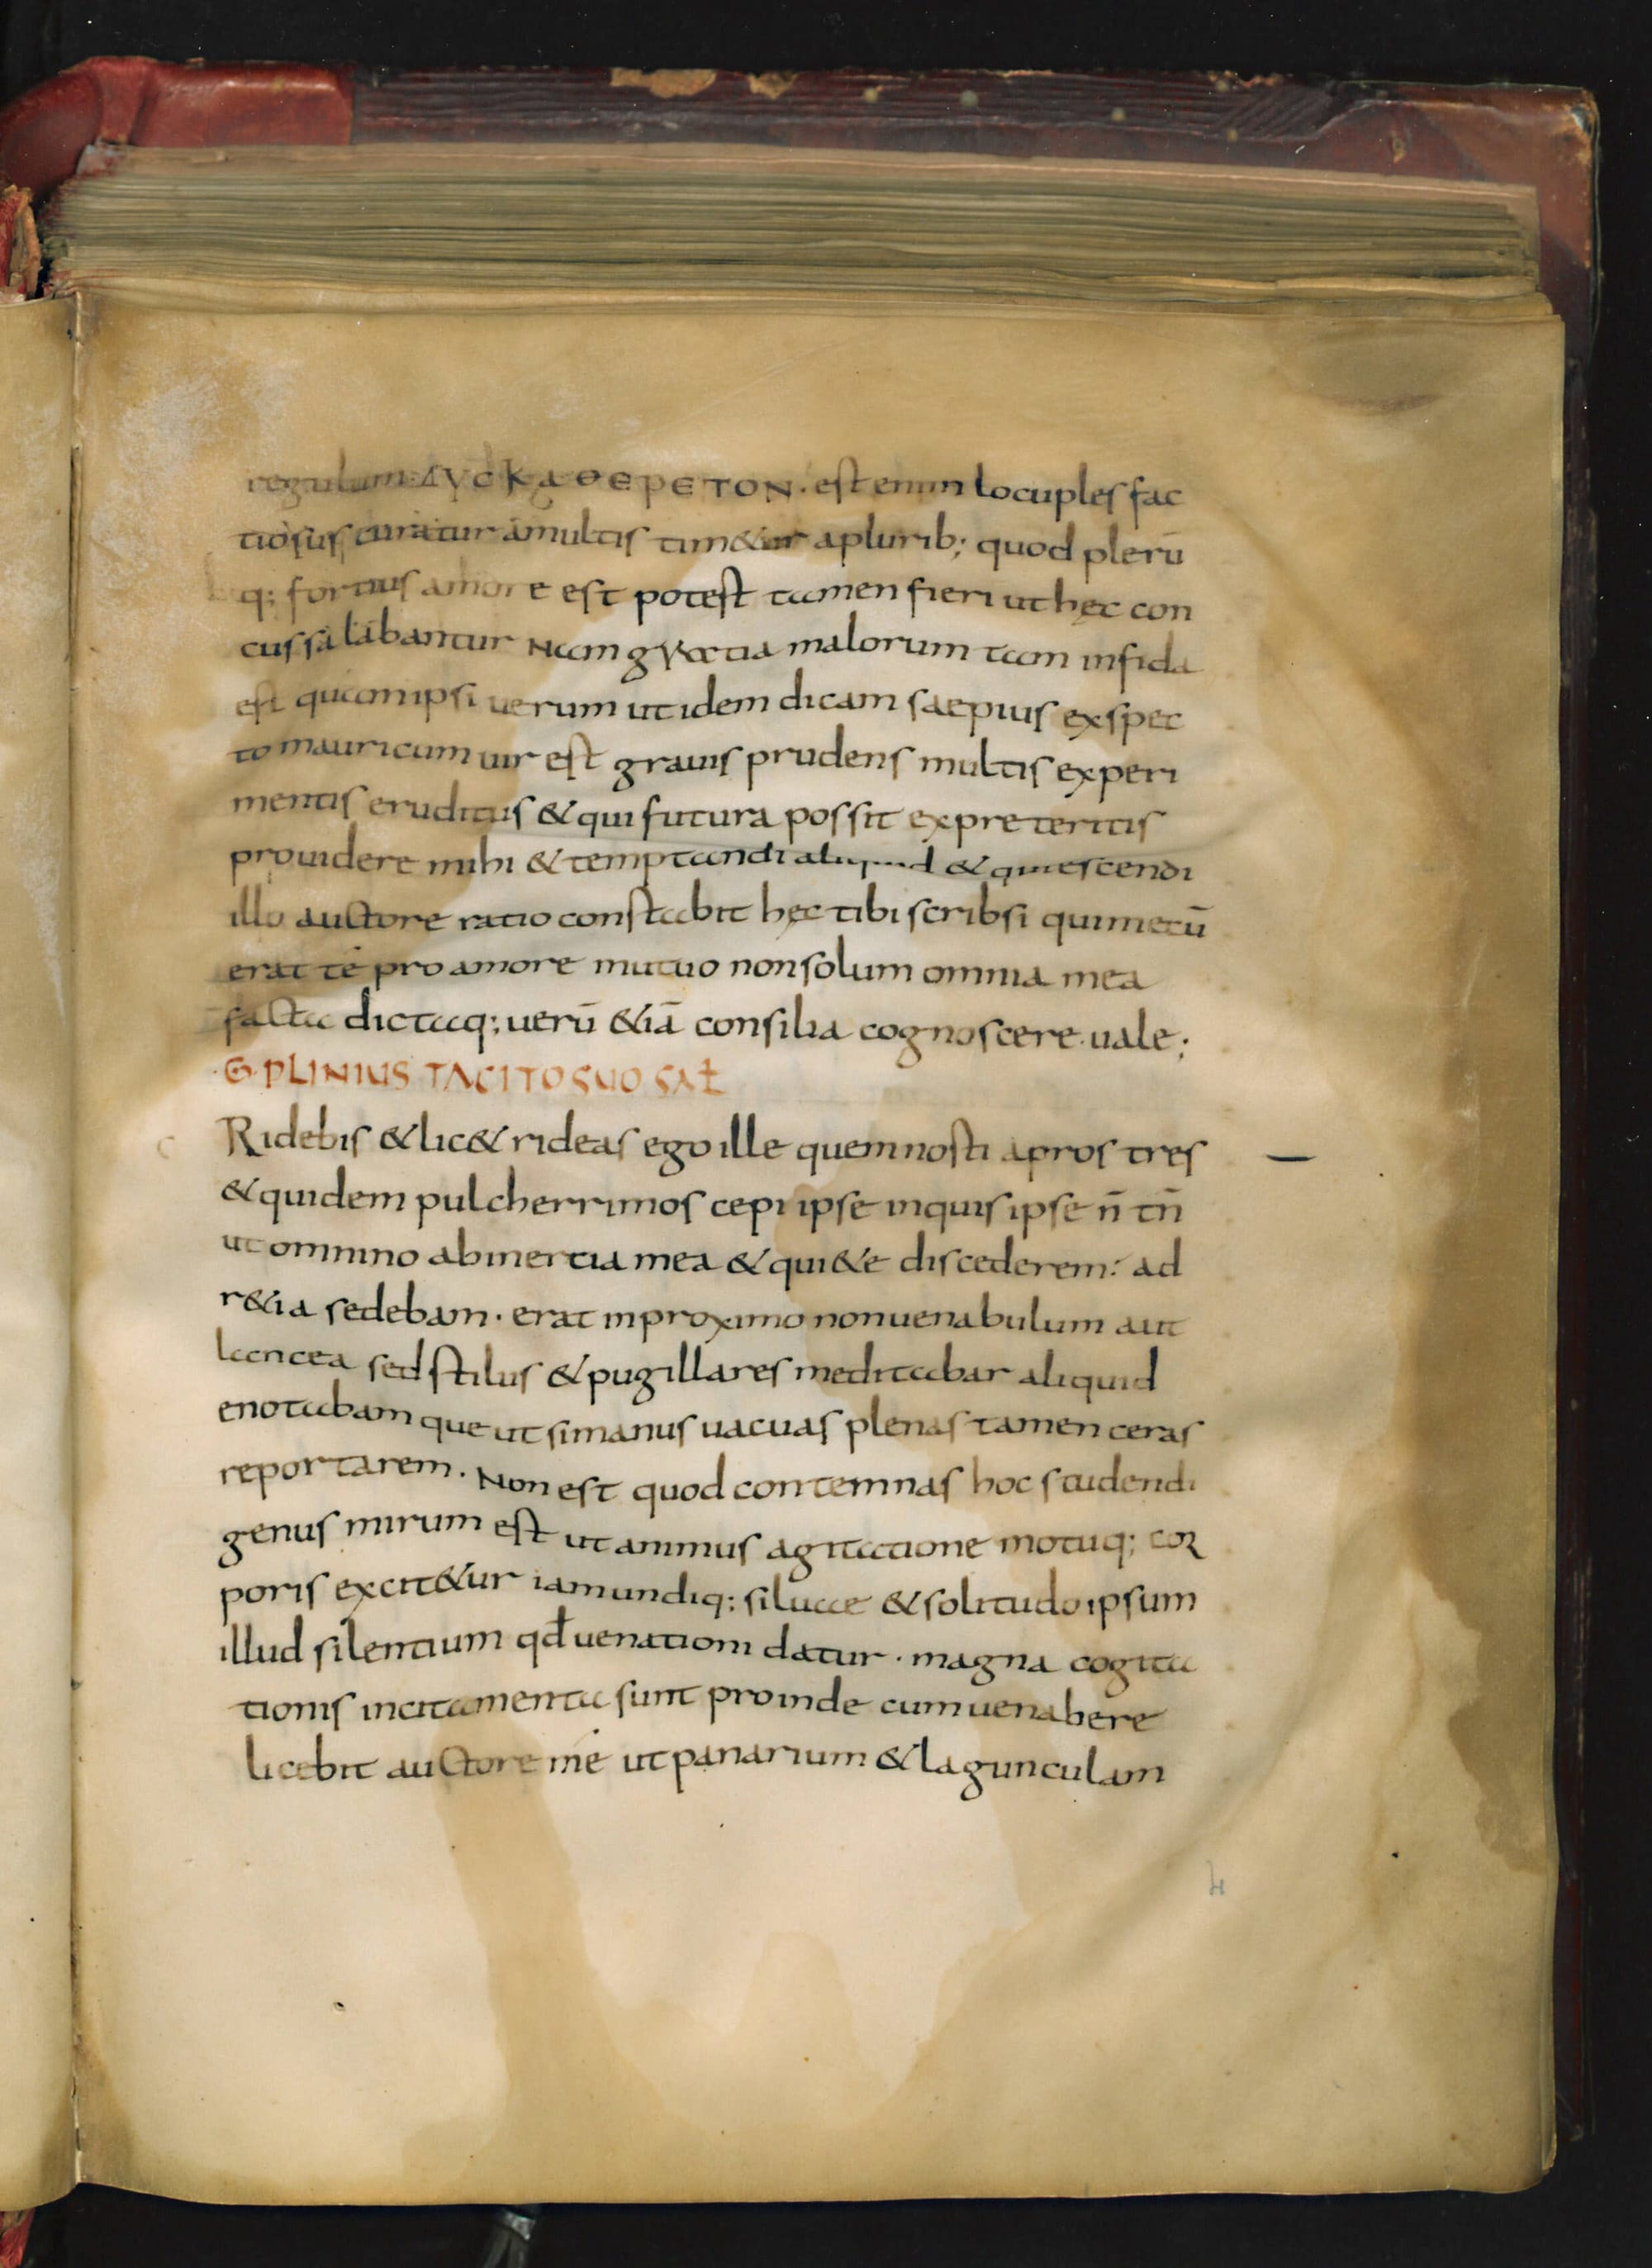 regulum ΔΥСΚΑΘΕΡΕΤΟΝ. est enim locuples fac
tiosus curatur amultis tim&ur aplurib; quod plerū
q; fortius amore est potest tamen fieri ut hęc con
cussa labantur Nam gratia malorum tam infida
est quam ipsi uerum ut idem dicam saepius exspec
to mauricum uir est grauis prudens multis experi
mentis eruditus & qui futura possit expreteritis
prouidere mihi & temptandi aliquid & quiescendi
illo auctore ratio constabit hęc tibi scribsi quimecū
erat te pro amore mutuo non solum omnia mea
facta dictaq; uerū &iā consilia cognoscere. uale;
·G· PLINIUS TACITO SUO SAŁ
Ridebis & lic& rideas ego ille quem nosti apros tres
& quidem pulcherrimos cepi ipse inquis ipse n̄ tn̄
ut omnino abinertia mea & qui&e discederem: ad
r&ia sedebam. erat inproximo non uenabulum aut
lancea sed stilus & pugillares meditabar aliquid
enotabamque ut simanus uacuas plenas tamen ceras
reportarem. Non est quod contemnas hoc studendi
genus mirum est ut animus agitatione motuq; cor
poris excit&ur iam undiq; siluae & solitudo ipsum
illud silentium qđ uenationi datur. magna cogita
tionis incitamenta sunt proinde cum uenabere
licebit auctore me ut panarium & lagunculam